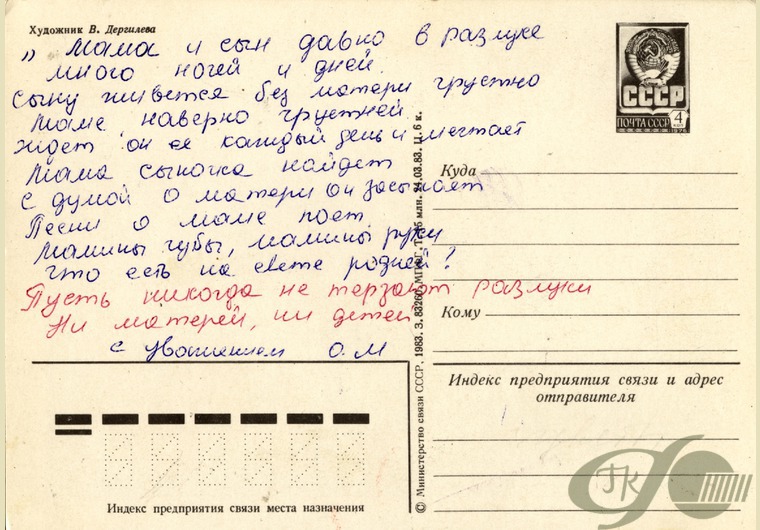 Художник В. Дергилева
„ Мама и сын давно в разлуке
много ночей и дней.
Сыну живется без матери грустно
Маме наверно грустней.
Ждет он ее каждый день и мечтает
Мама сыночка найдет
С думой о матери он засыпает
Песни о маме поет
Мамины губы, мамины руки
Что есть на свете родней?
Пусть никогда не терзают разлуки
Ни матерей, ни детей
с уважением О.М
СССР
ПОЧТА СССР 4
Куда
Кому
Индекс предприятия связи и адрес
отправителя
Индекс предприятия связи места назначения
© Министерство связи СССР. 1983. З. 83260. МПФГ. Т. 35 млн. 24.03.83. Ц. 6 к.
ГК